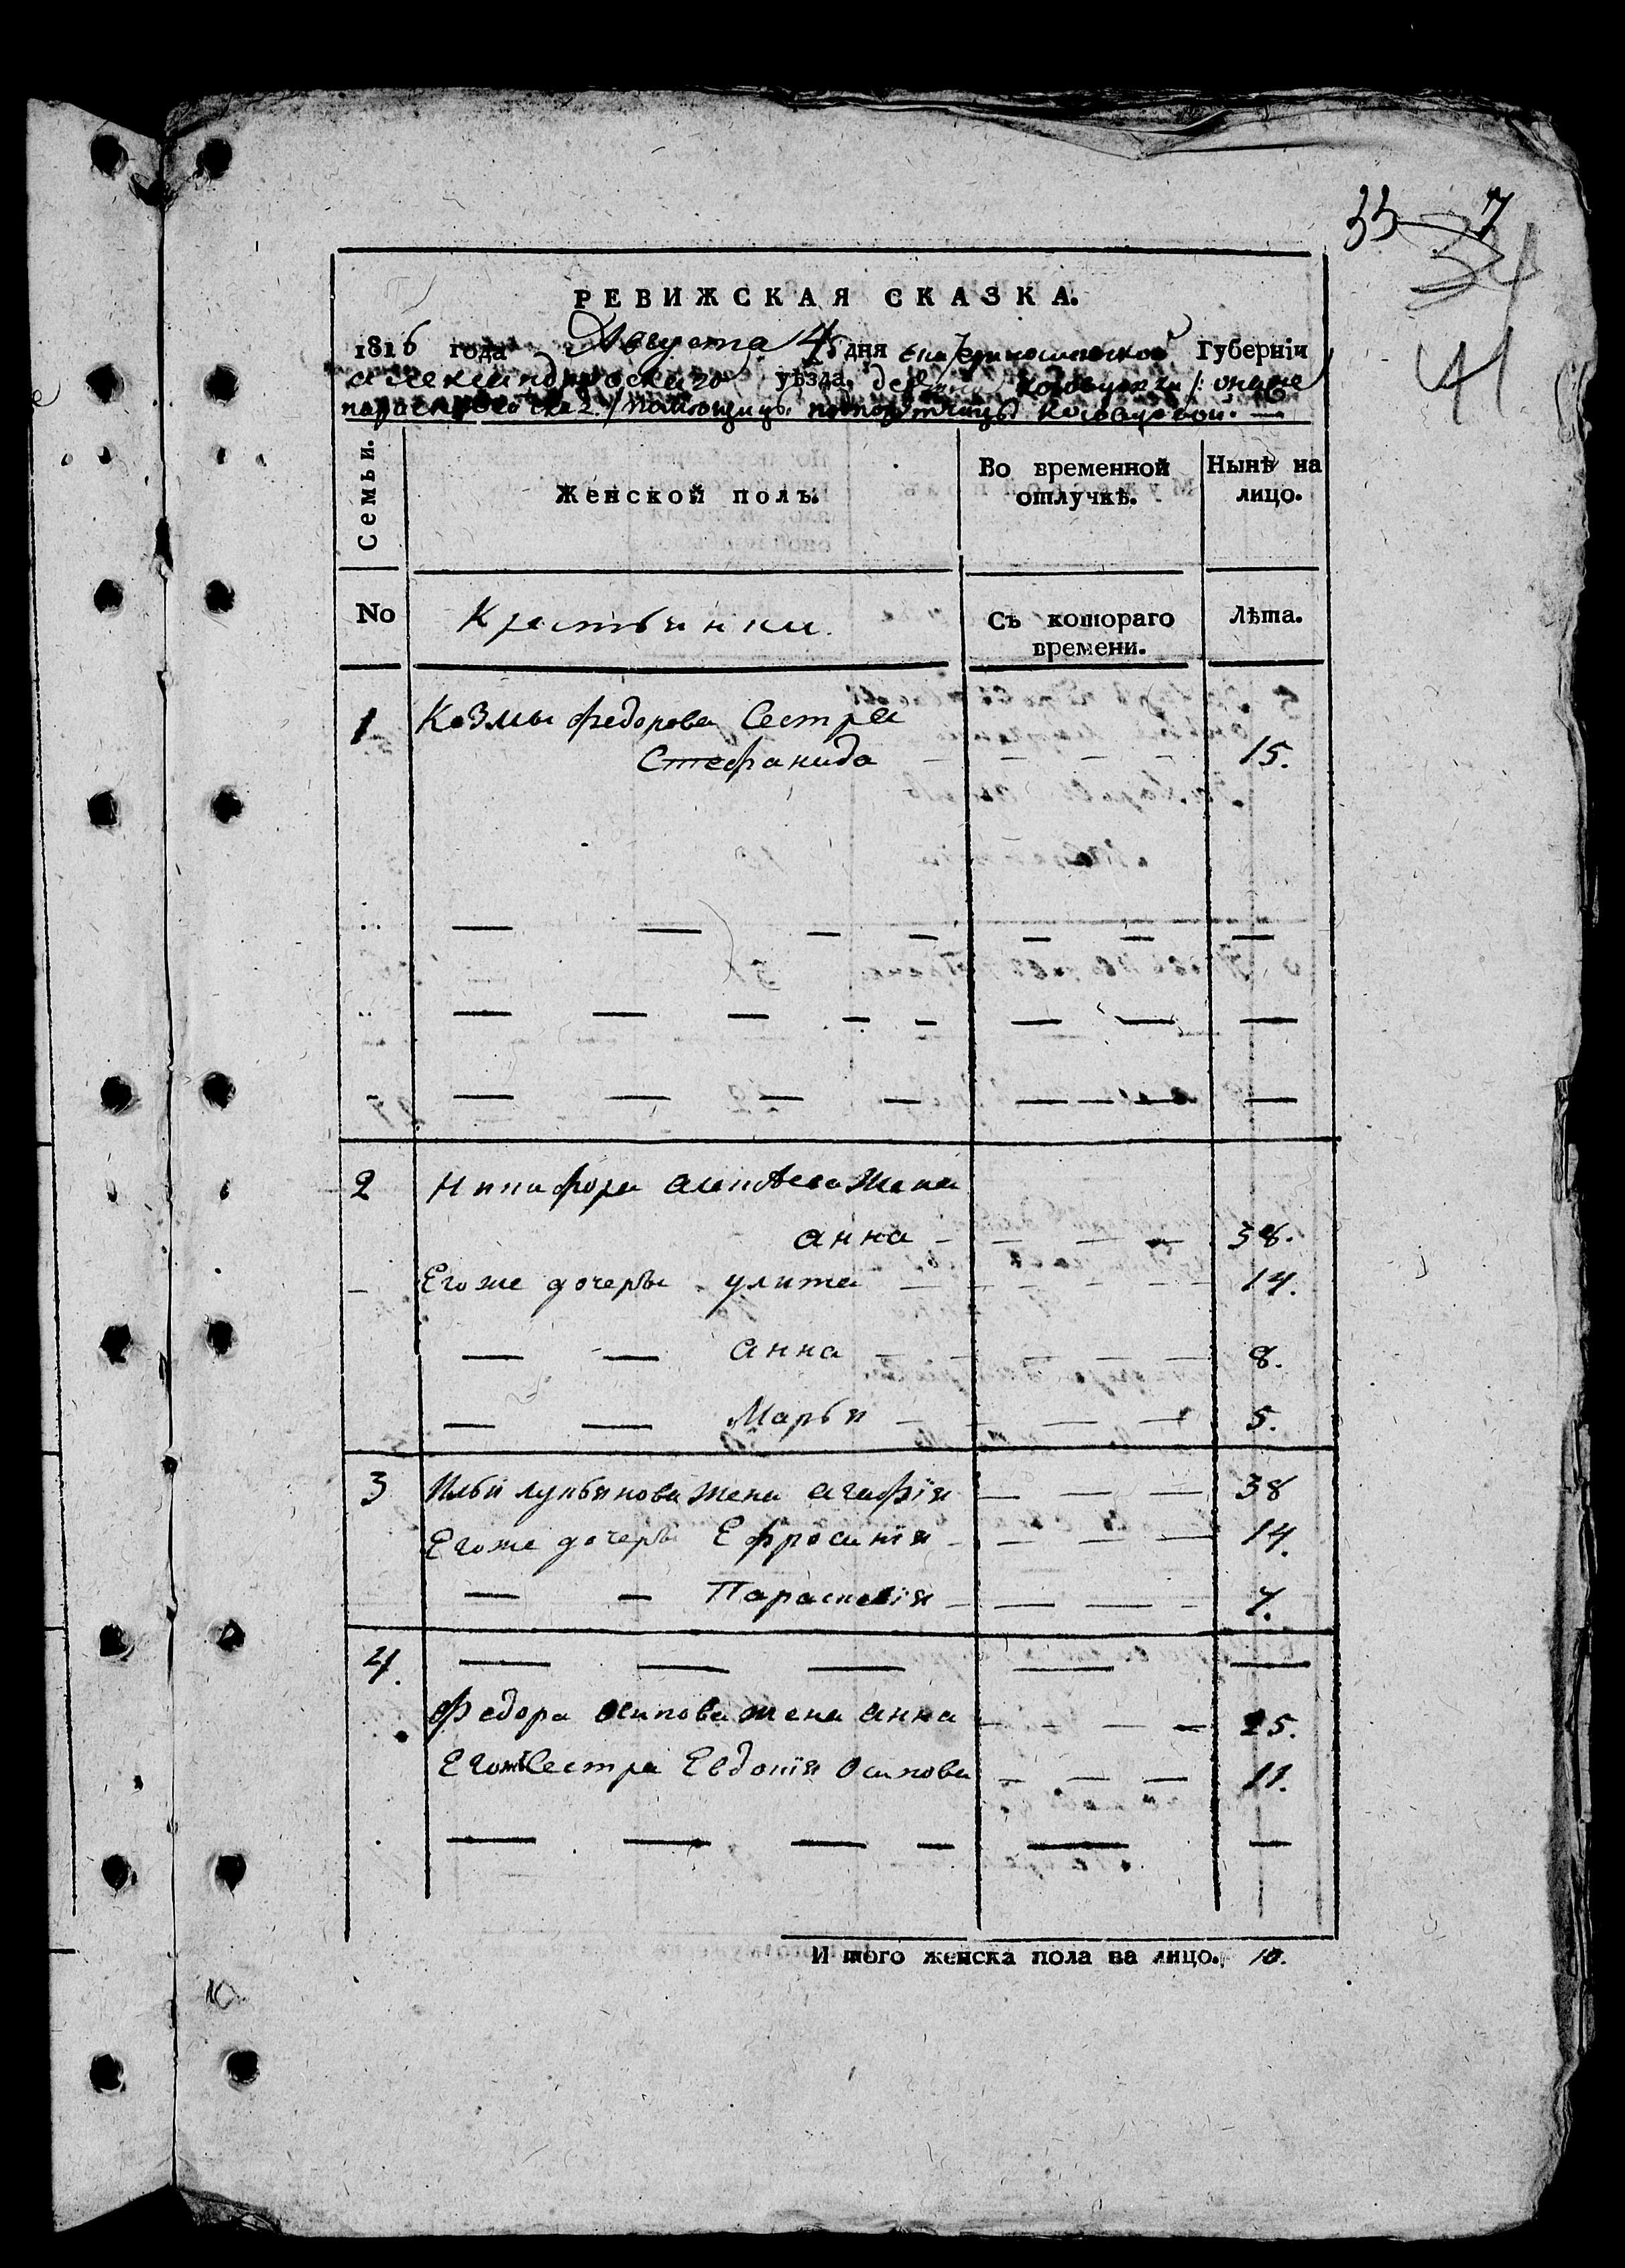 33 7
41
РЕВИЖСКАЯ СКАЗКА.
1816 года Августа 4 дня Екатеринославской Губернїи
александровскаго уѣзда,
помѣщицы
Семьи. Женской полъ. Во временной отлучкѣ. Нынѣ на лицо.
No Крестьянки. Съ котораго времени. Лѣта.
1 Козмы федорова Сестра
Стефанида — — — — 15.
— — — — — — —
— — — — — — — —
— — — — — — — —
2 Никифора жена
анна — — — — 38.
— Егоже дочери улита — — — — — 14.
— — анна — — — — — 8.
— — Марья — — — — 5.
3 Ильи лукьянова жена агафїя — — — 38
Егоже дочери Ефросинїя — — — — 14.
— — Параскевїя — — — — 7.
4. — — — — —
федора осипова жена анна — — — — 25.
Егоже Сестра Евдокїя Осипова — — — 11.
— — — — — —
И того женска пола на лицо. 10.